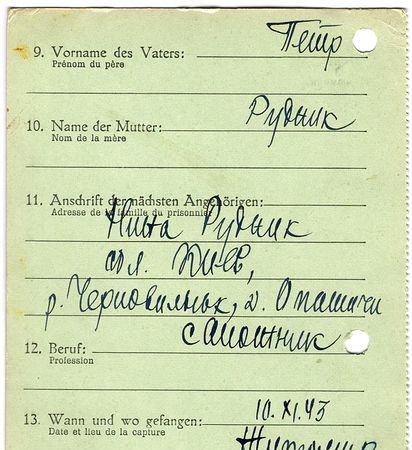 9. Vorname des Vaters: Петр
Prénom du père
10. Name der Mutter: Рудник
Nom de la mère
11. Anschrift der nächsten Angehörigen:
Adresse de la famille du prisonnier
Нина Рудник
обл. Киев,
р. Черновильск, д. Опашичи
сапожник
12. Beruf:
Profession
13. Wann und wo gefangen: 10.XI.43
Date et lieu de la capture
Житомир